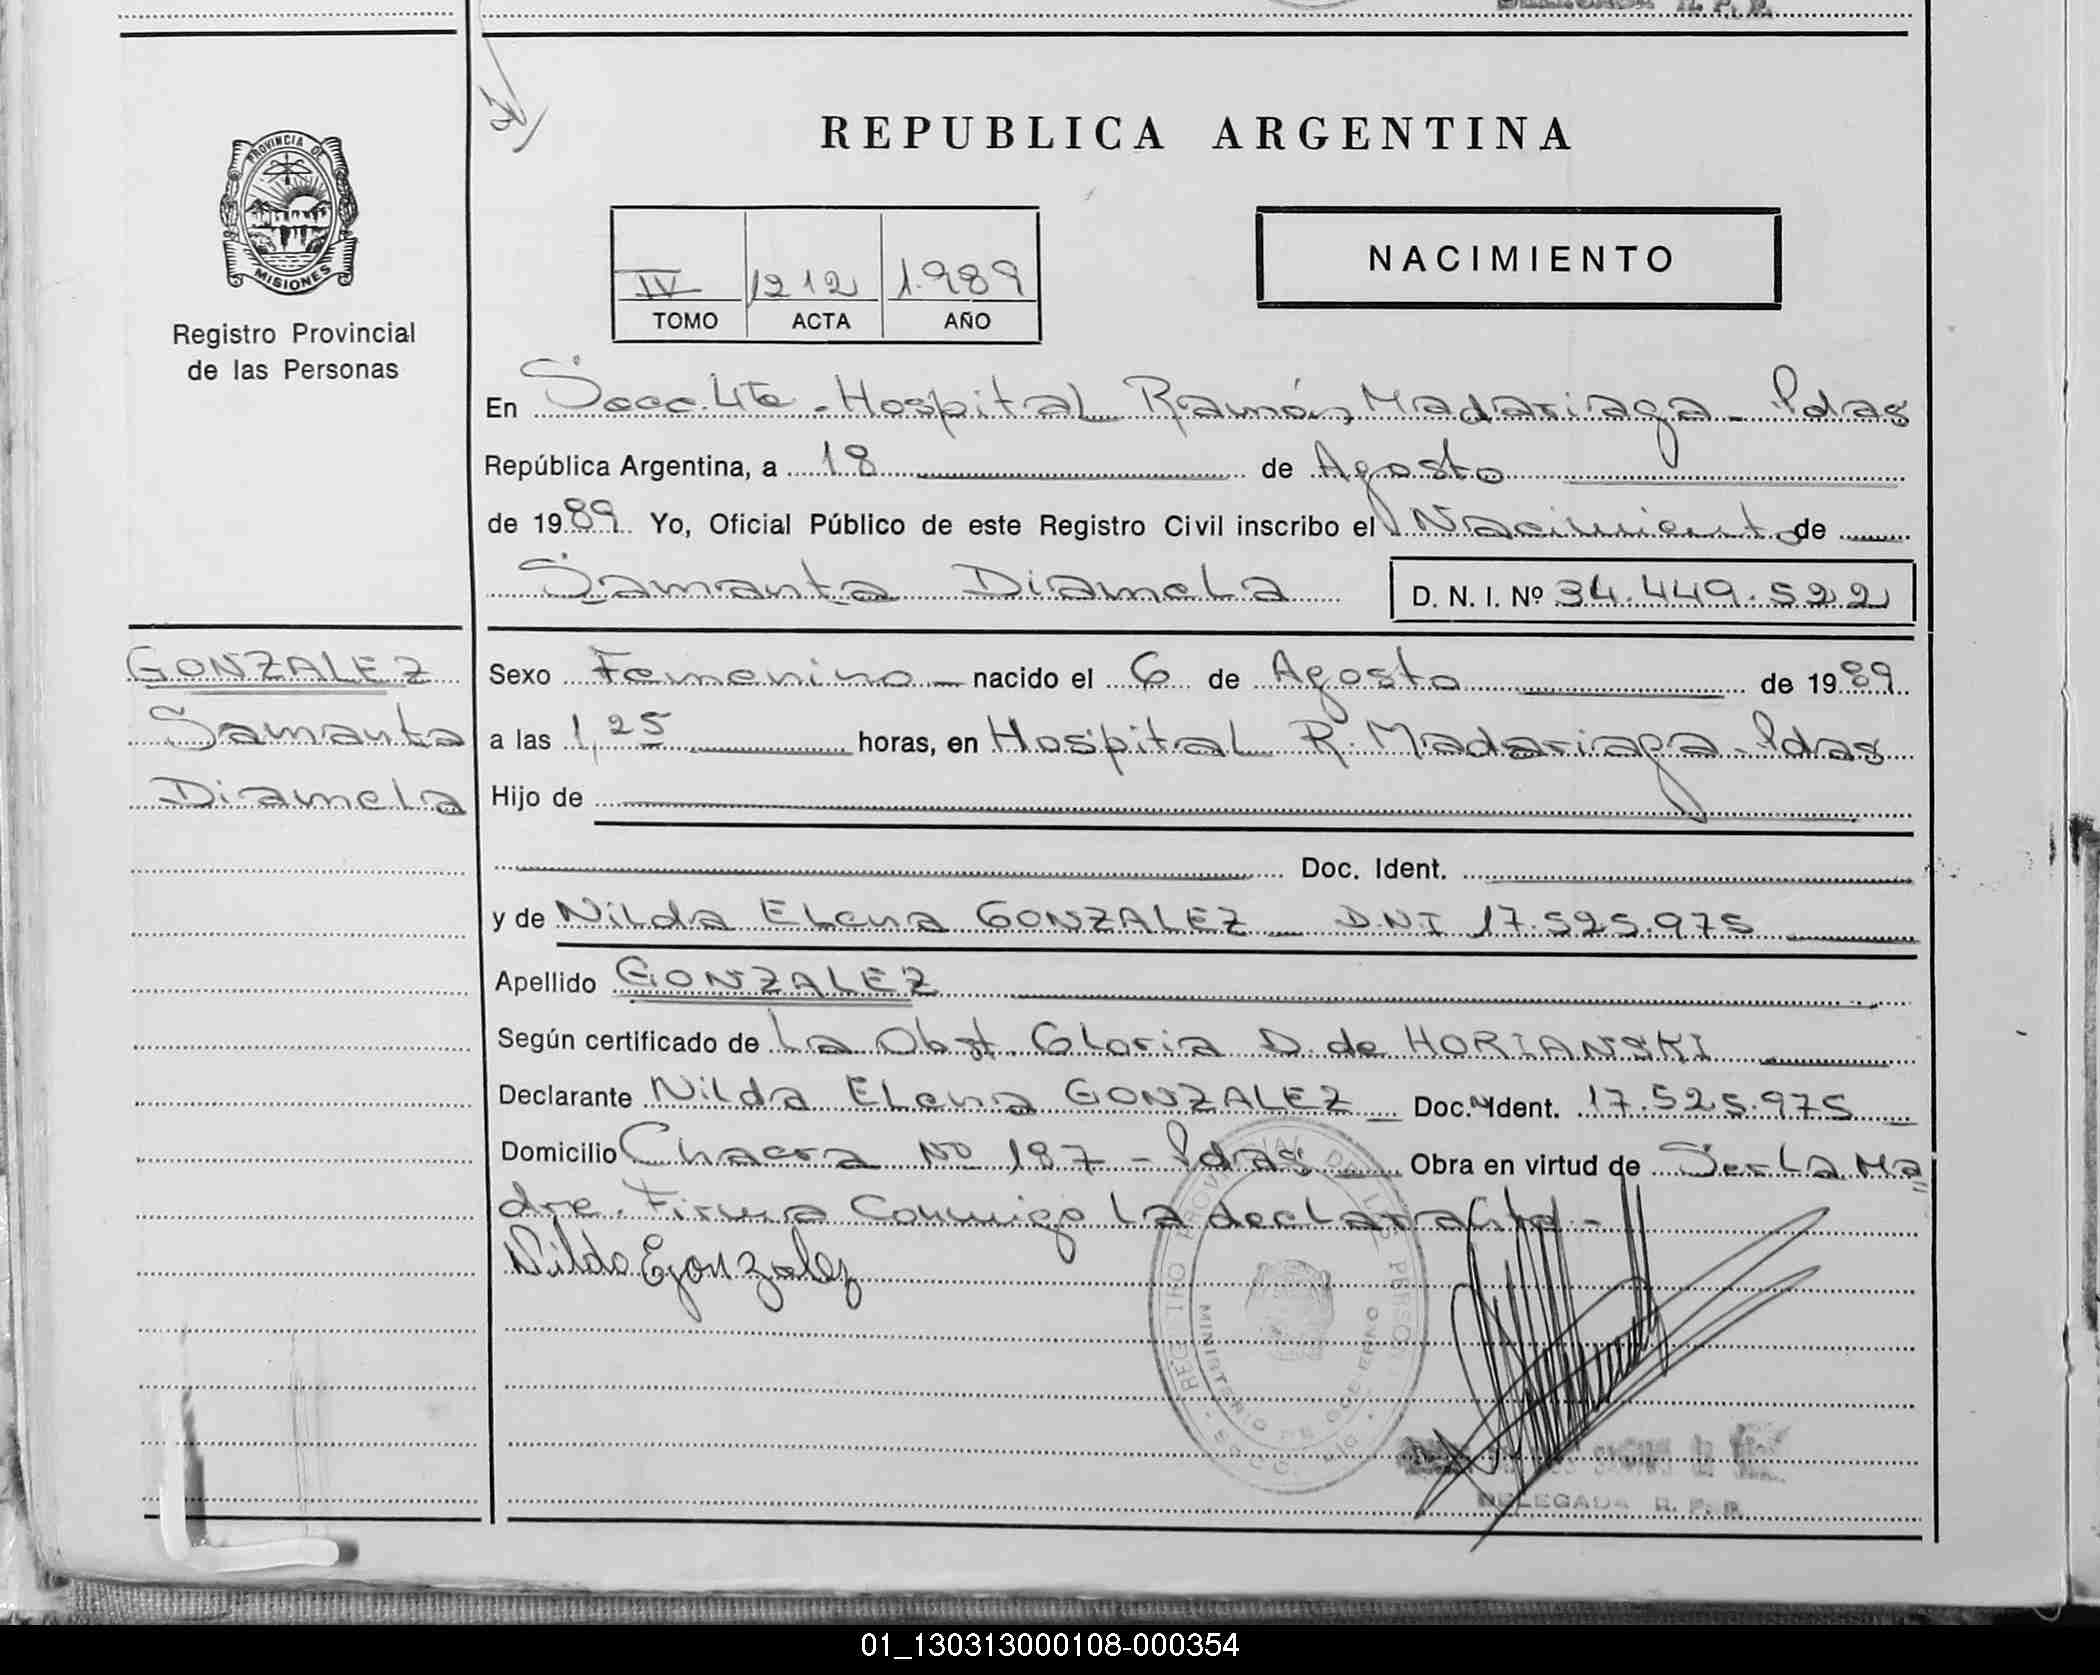 DELEGADA R. P. P.
REPUBLICA ARGENTINA
PROVINCIA DE
MISIONES
Registro Provincial
de las Personas
IV 1212 1.989
TOMO ACTA AÑO
NACIMIENTO
En Secc. 4ta - Hospital Ramón Madariaga - Pdas
República Argentina, a 18 de Agosto
de 1989 Yo, Oficial Público de este Registro Civil inscribo el Nacimiento de
Samanta Diamela D. N. I. Nº 34.449.522
GONZALEZ
Samanta
Diamela
Sexo Femenino - nacido el 6 de Agosto de 1989
a las 1,25 horas, en Hospital R. Madariaga - Pdas
Hijo de
Doc. Ident.
y de Nilda Elena GONZALEZ - D.N.I 17.525.975
Apellido GONZALEZ
Según certificado de La Obst. Gloria D. de HORIANSKI
Declarante Nilda Elena GONZALEZ - Doc. Ident. 17.525.975
Domicilio Chacra Nº 187 - Pdas Obra en virtud de Ser La Ma
dre. Firma Conmigo La declarante -
Nilda E Gonzalez
REGISTRO PROVINCIAL DE LAS PERSONAS
MINISTERIO DE GOBIERNO
DELEGADA R. P. P.
01_130313000108-000354